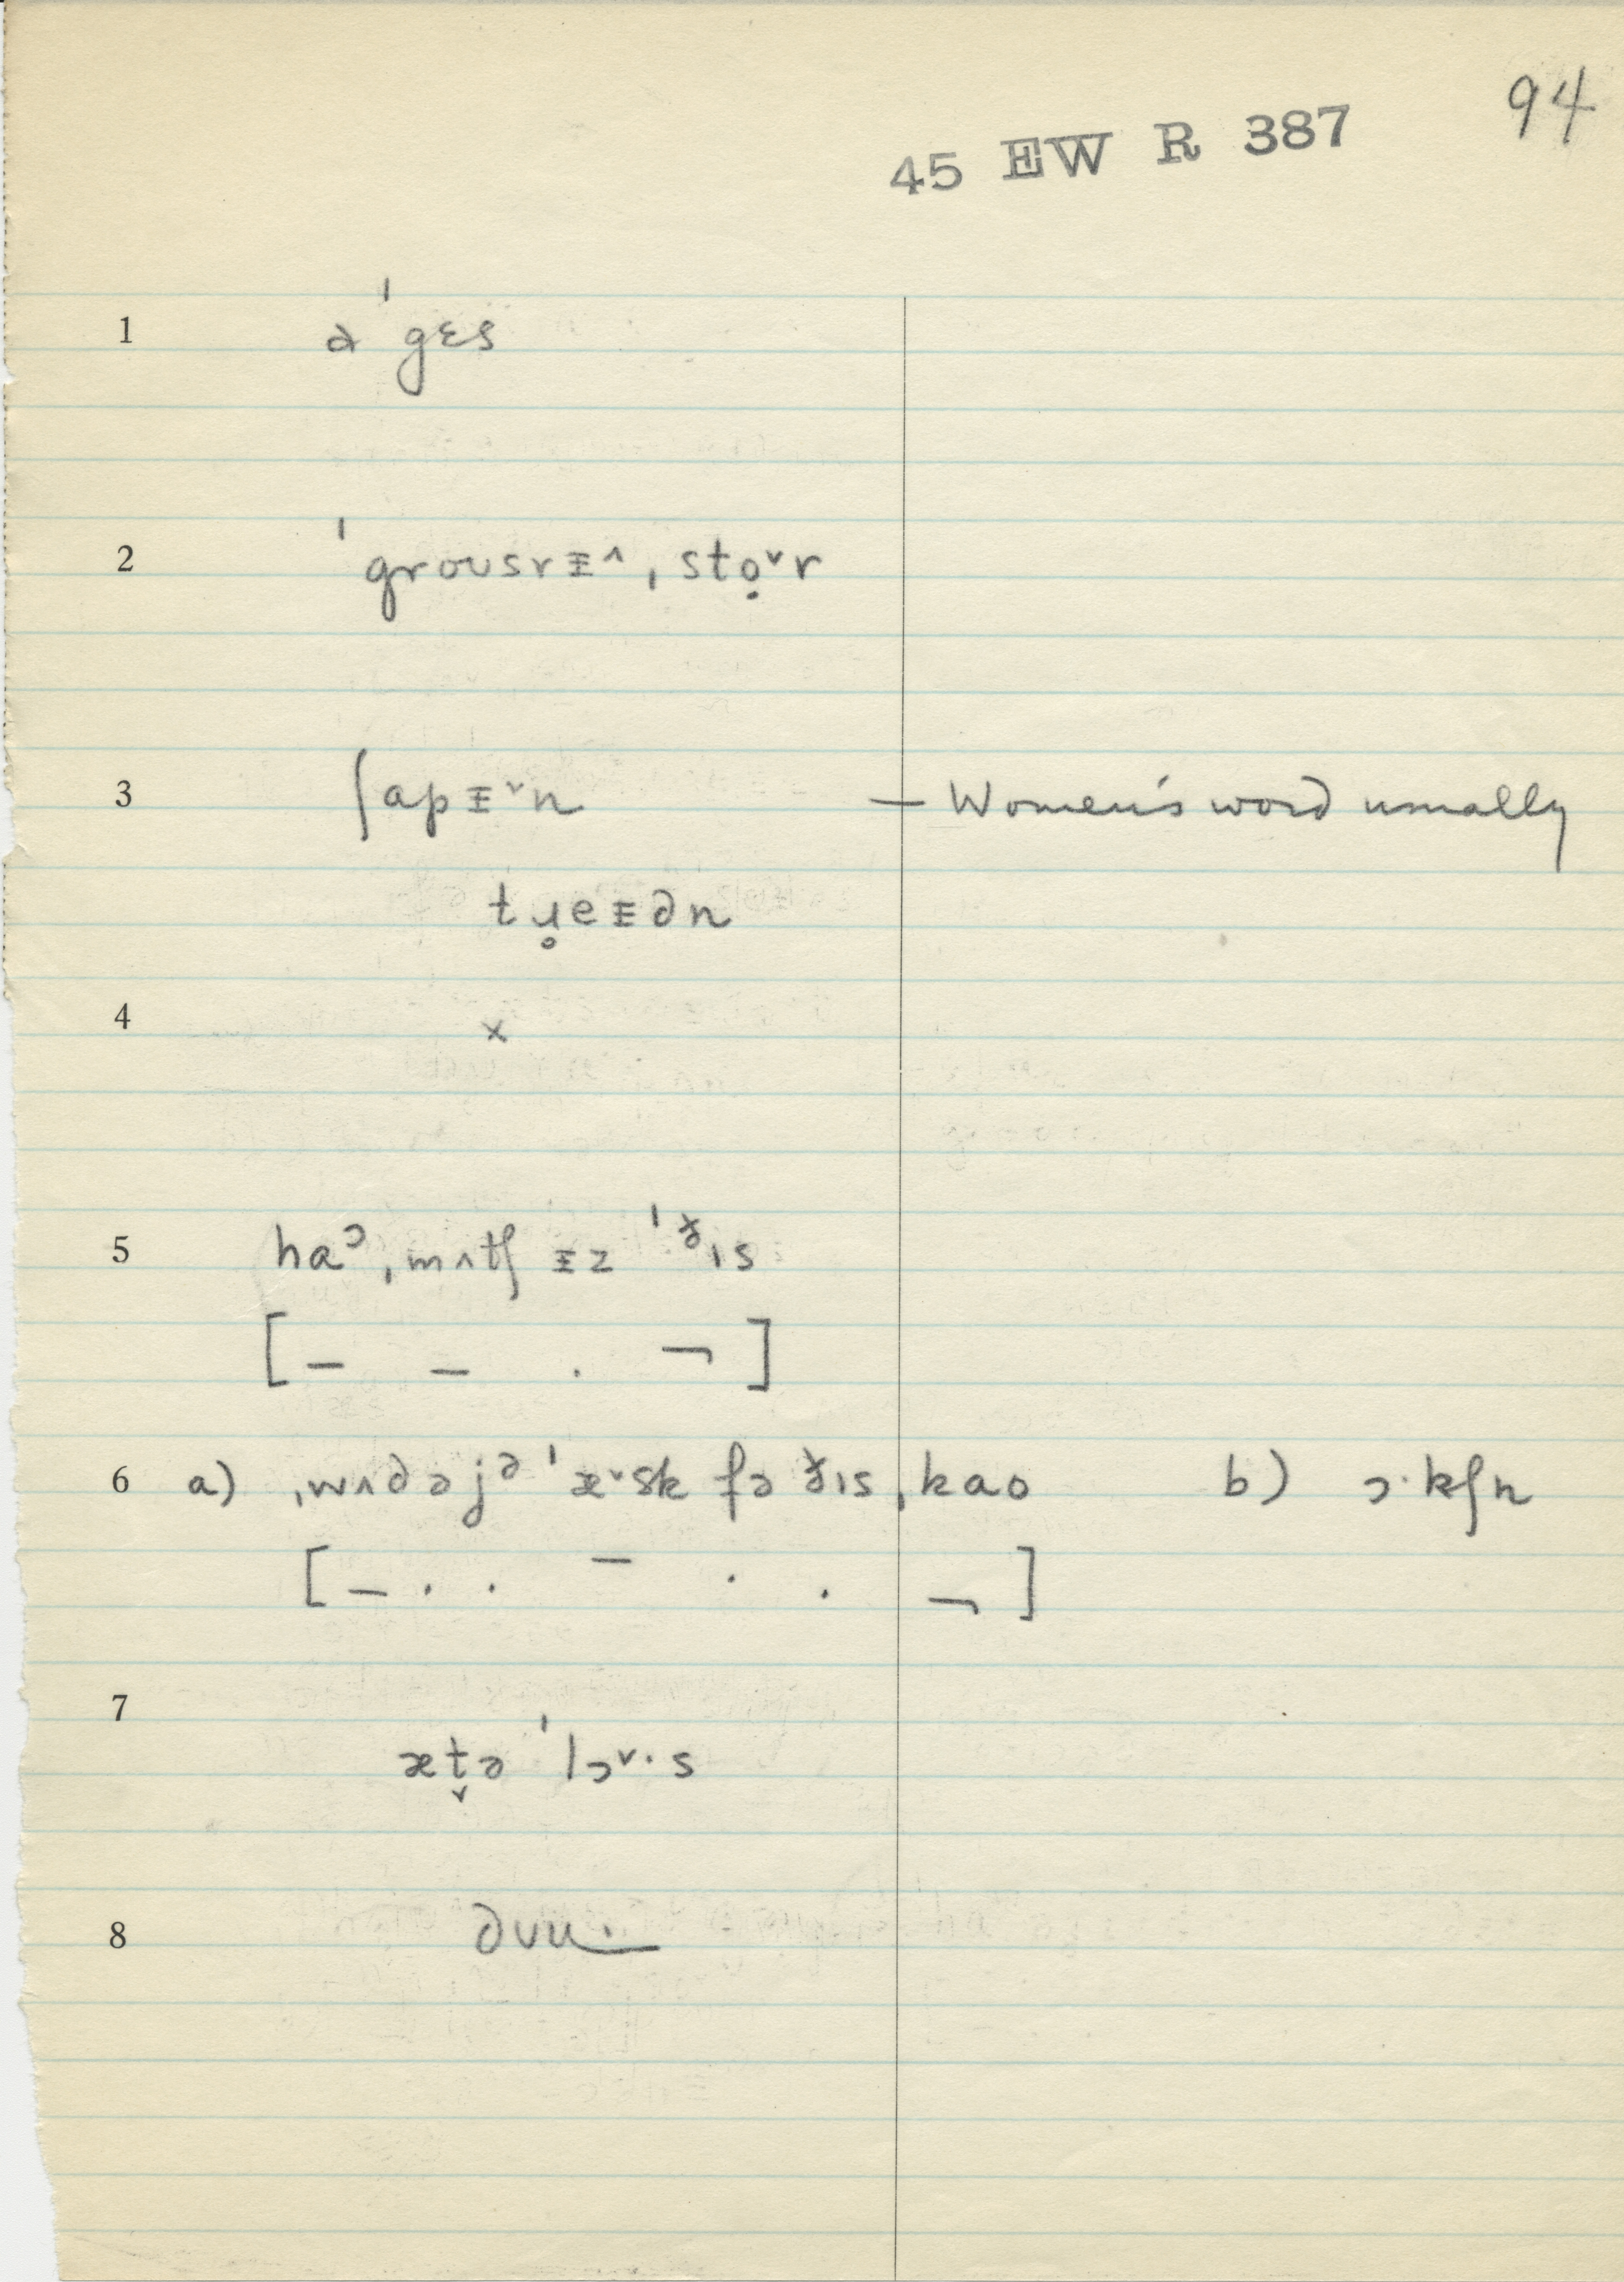 94
45 EW R 387
1 ə ˈgɛs
2 ˈgroʊsrᵻ˄ ˌstọ˅r
3 ʃapᵻ˅n — Women's word usually
tɹ̥eᵻən
4 x
5 haᵓ ˌmʌtʃ ᵻz ˈð̵ɪs
[ – – . ¬ ]
6 a) ˌwʌdəjᵊ ˈæ˅sk fə ð̵ɪs ˌkao b) ɔ·kʃn
[ – . . – . . ¬ ]
7 æt̬ə ˈlɔ˅·s
8 ðʊu·